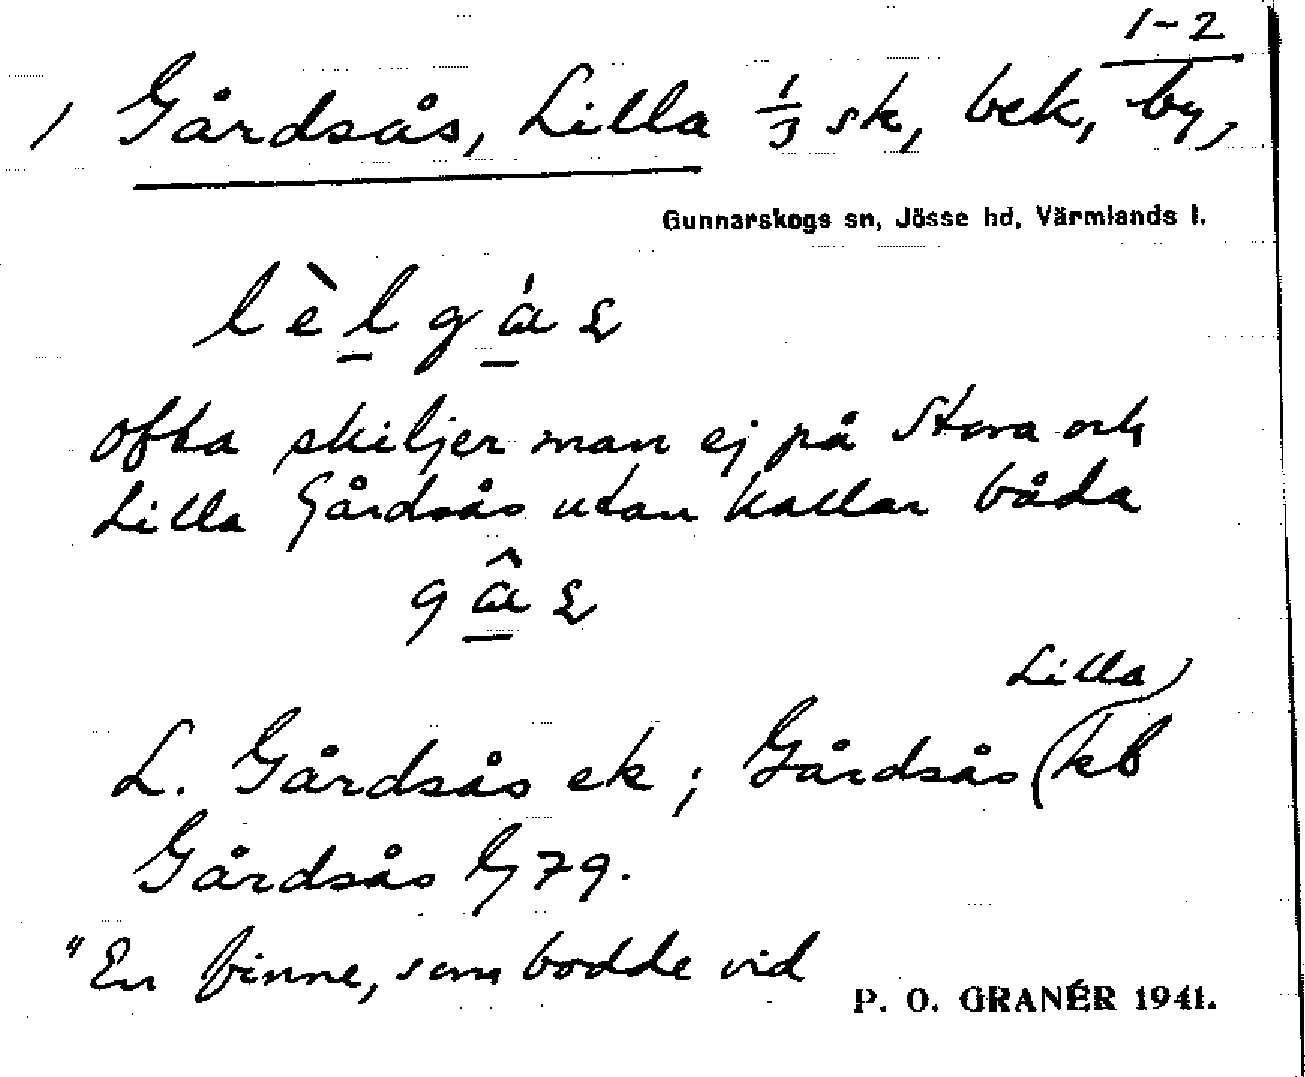 1-2
/ Gårdsås, Lilla 1/3 sk, bek, by,
Gunnarskogs sn, Jösse hd, Värmlands l.
lèlgás
Ofta skiljer man ej på Stora och
Lilla Gårdsås utan kallar båda
gâs
Lilla
L. Gårdsås ek; Gårdsås (kb
Gårdsås G 79.
"En finne, som bodde vid
P. O. GRANÉR 1941.